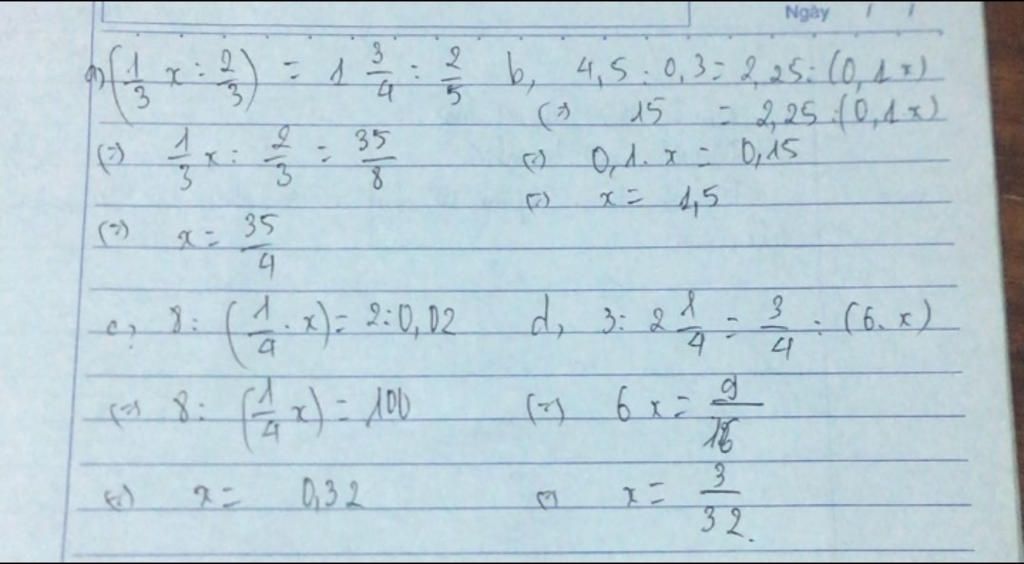 Ngày / /
a) (1/3 x : 2/3) = 1 3/4 : 2/5
(=) 1/3 x : 2/3 = 35/8
(=) x = 35/4
b, 4,5 : 0,3 = 2,25 : (0,1x)
(=) 15 = 2,25 : (0,1x)
(=) 0,1 . x = 0,15
(=) x = 1,5
c, 8 : (1/4 . x) = 2 : 0,02
(=) 8 : (1/4 x) = 100
(=) x = 0,32
d, 3 : 2 1/4 = 3/4 : (6 . x)
(=) 6x = 9/16
(=) x = 3/32.